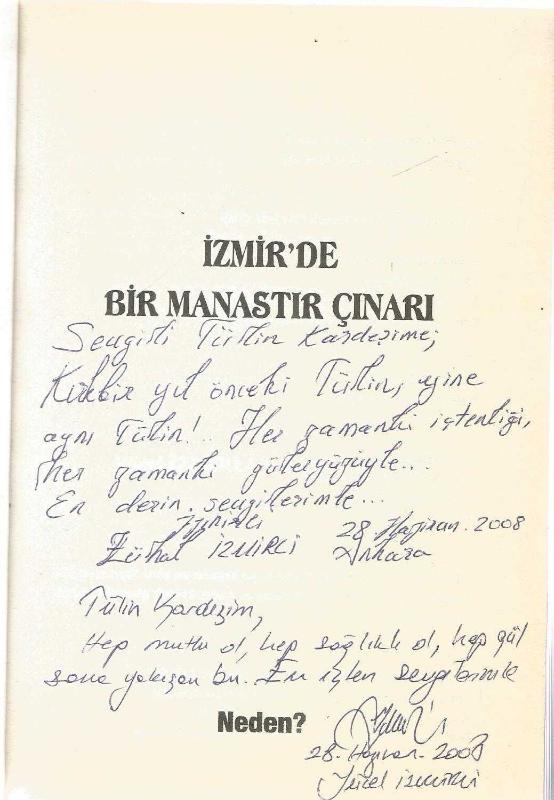 İZMİR'DE
BİR MANASTIR ÇINARI
Sevgili Tülin Kardeşime;
Kırkbir yıl önceki Tülin, yine
aynı Tülin!.. Her zamanki içtenliği,
her zamanki güleryüzüyle...
En derin sevgilerimle...
28 Haziran. 2008
Zühal İZMİRLİ Ankara
Tülin Kardeşim,
Hep mutlu ol, hep sağlıklı ol, hep gül
sana yakışan bu. En içten sevgilerimle
Neden?
28. Haziran. 2008
Yücel İZMİRLİ